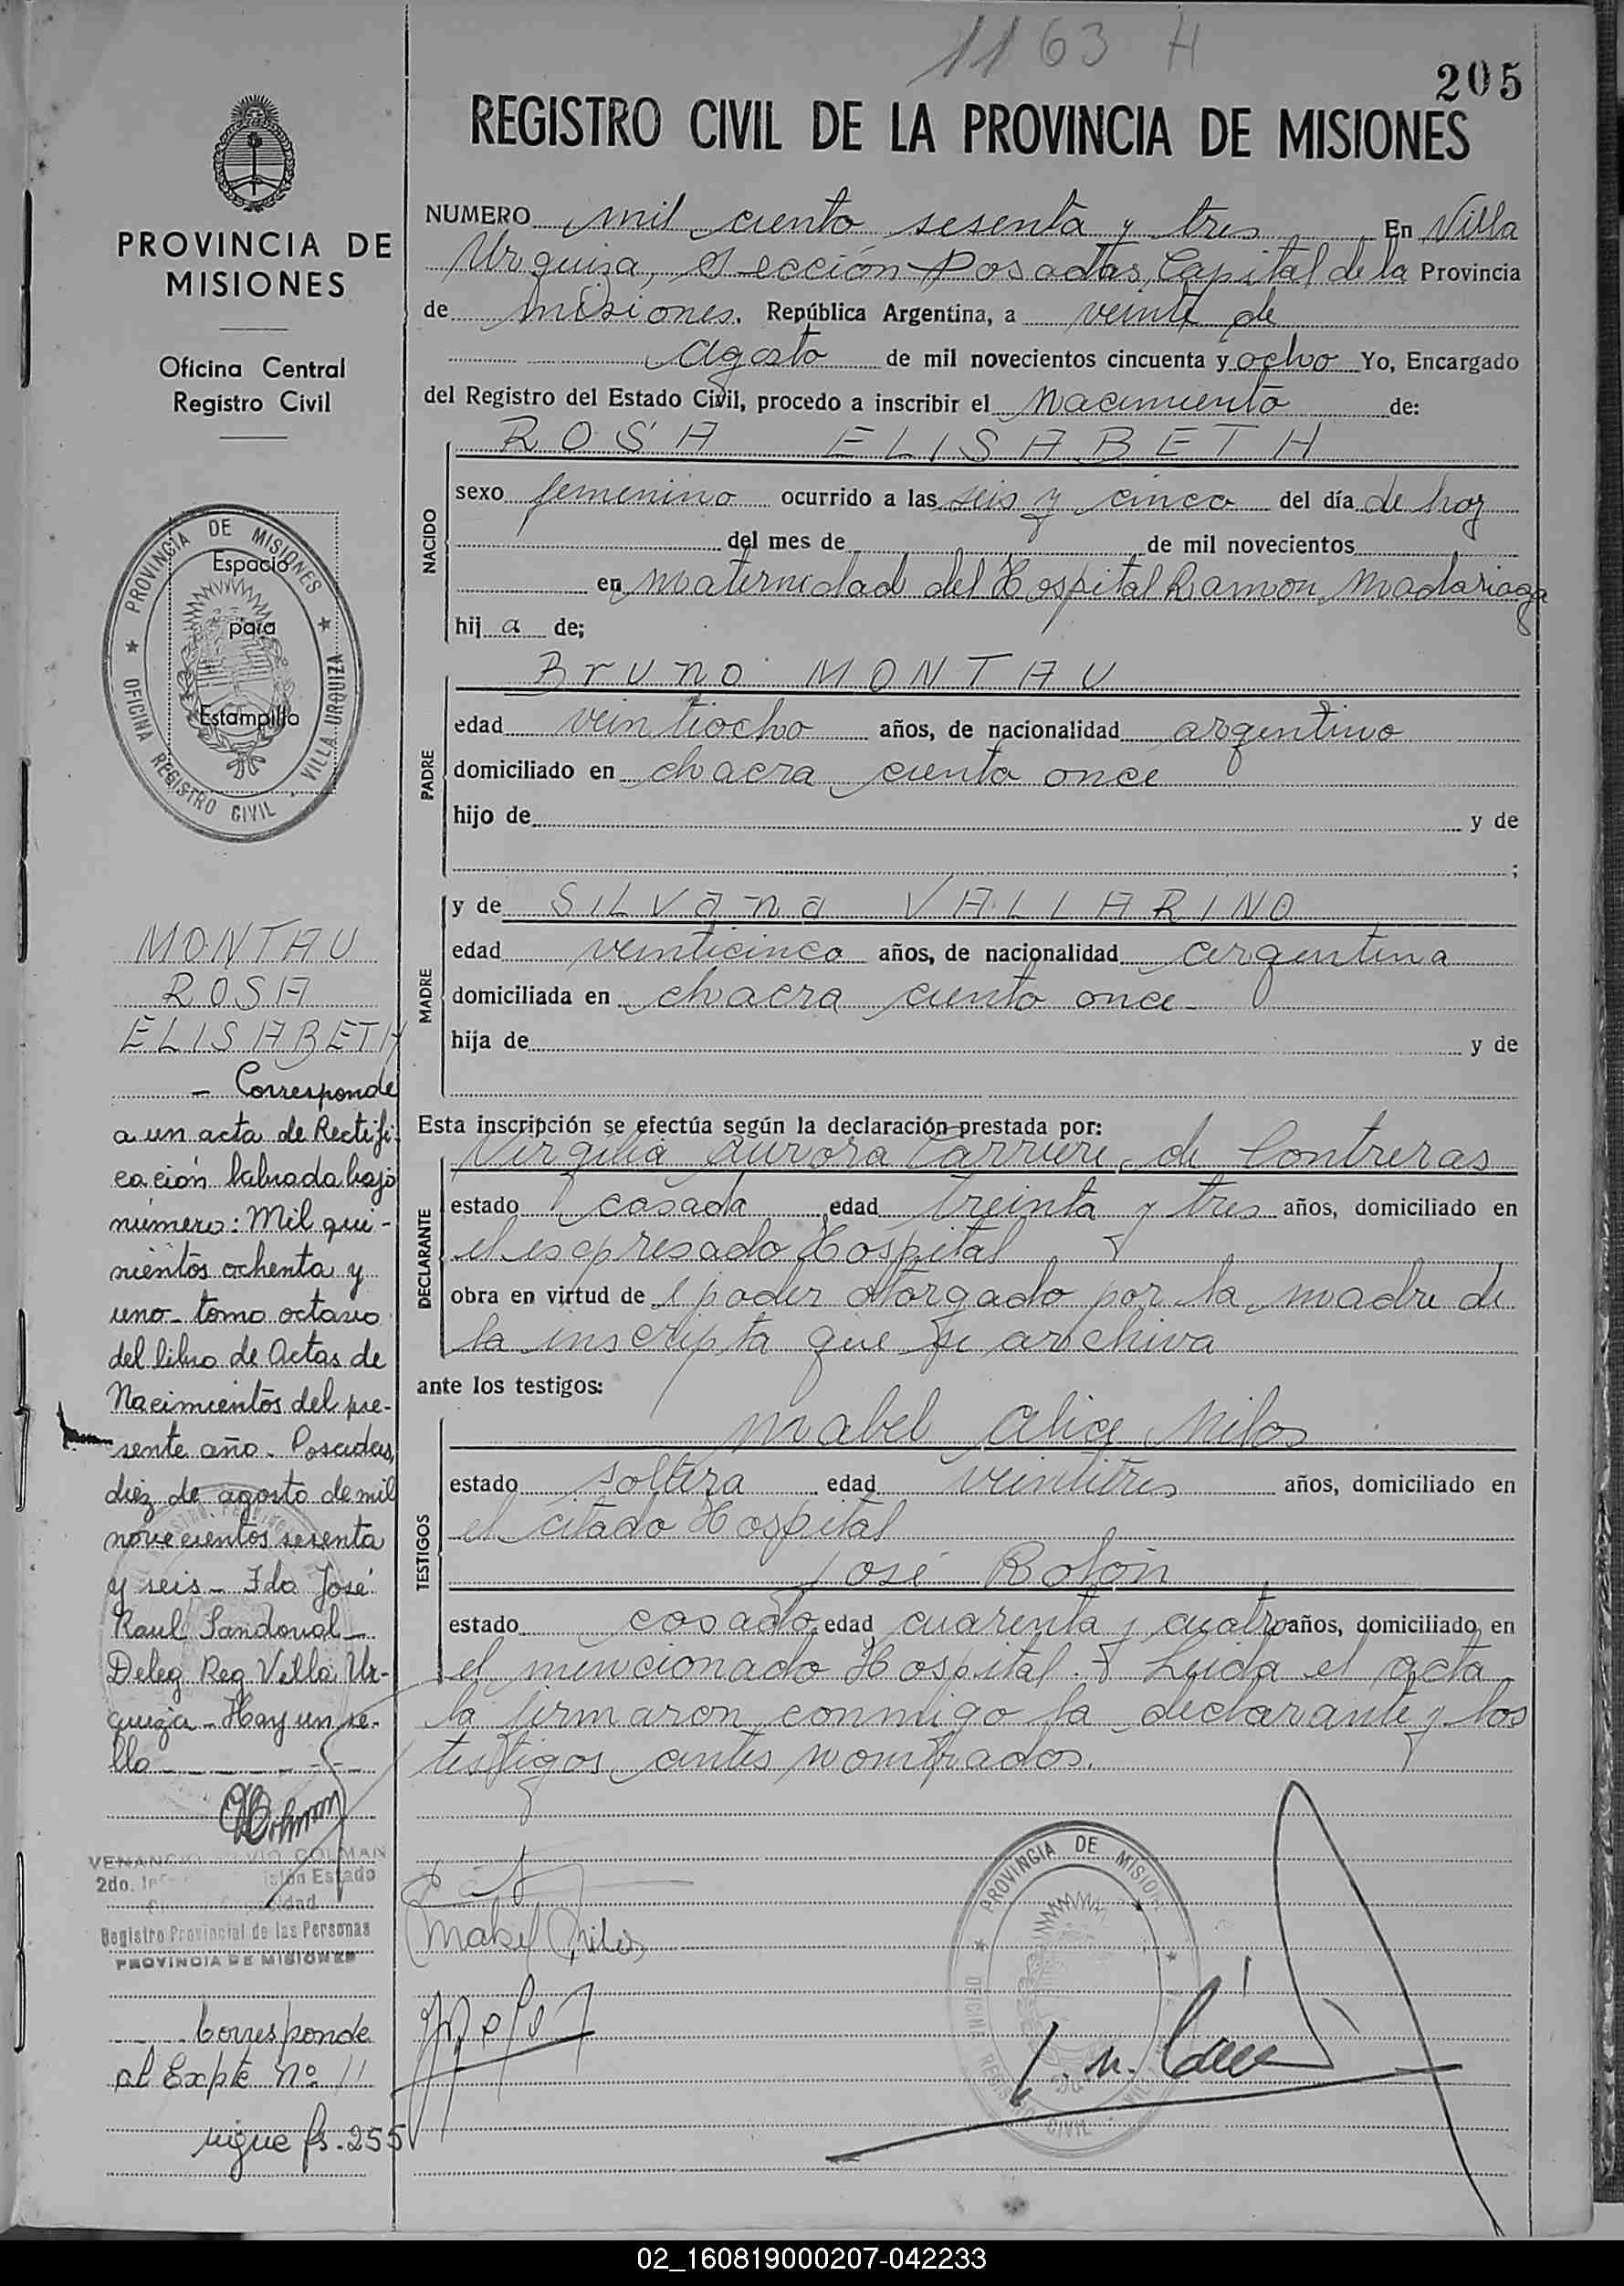 1163 H
205
REGISTRO CIVIL DE LA PROVINCIA DE MISIONES
PROVINCIA DE
MISIONES
Oficina Central
Registro Civil
PROVINCIA DE MISIONES
OFICINA REGISTRO CIVIL - VILLA URQUIZA
Espacio
para
Estampilla
MONTAU
ROSA
ELISABETH
- Corresponde
a un acta de Rectifi-
cación labrada bajo
número: Mil qui-
nientos ochenta y
uno - tomo octavo
del libro de Actas de
Nacimientos del pre-
sente año - Posadas,
diez de agosto de mil
novecientos sesenta
y seis - Fdo José
Raul Sandoval -
Deleg. Reg. Villa Ur-
quiza - Hay un se-
llo
VENANCIO COLMAN
2do.
Registro Provincial de las Personas
PROVINCIA DE MISIONES
Corresponde
al Expte nº 11
sigue fs. 255
NUMERO mil ciento sesenta y tres En Villa
Urquiza, Sección Posadas, Capital de la Provincia
de misiones. República Argentina, a veinte de
Agosto de mil novecientos cincuenta y ocho Yo, Encargado
del Registro del Estado Civil, procedo a inscribir el nacimiento de:
NACIDO
ROSA ELISABETH
sexo femenino ocurrido a las seis y cinco del día de hoy
del mes de de mil novecientos
en maternidad del Hospital Ramon Madariaga
hij a de;
PADRE
Bruno MONTAU
edad veintiocho años, de nacionalidad argentino
domiciliado en chacra ciento once
hijo de y de
;
MADRE
y de SILVana VALLARINO
edad veinticinco años, de nacionalidad argentina
domiciliada en chacra ciento once-
hija de y de
Esta inscripción se efectúa según la declaración prestada por:
DECLARANTE
Virgilia Aurora Carriere de Contreras
estado casada edad treinta y tres años, domiciliado en
el expresado Hospital
obra en virtud de l poder otorgado por la madre de
la inscripta que se archiva
ante los testigos:
TESTIGOS
Mabel Alice Milos
estado soltera edad veintitres años, domiciliado en
el citado Hospital
José Bolón
estado casado edad cuarenta y cuatro años, domiciliado en
el mencionado Hospital. Leida el acta
la firmaron conmigo la declarante y los
testigos antes nombrados.
Mabel Milos
PROVINCIA DE MISIONES
02_160819000207-042233